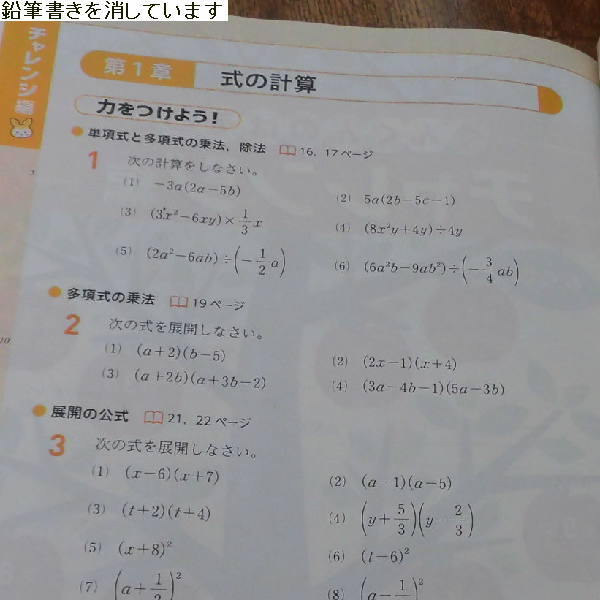 鉛筆書きを消しています
チャレンジ編
第1章 式の計算
力をつけよう!
単項式と多項式の乗法，除法 16，17ページ
1 次の計算をしなさい。
(1) −3a(2a−5b)
(2) 5a(2b−5c−1)
(3) (3x²−6xy)×1/3 x
(4) (8x²y+4y)÷4y
(5) (2a²−6ab)÷(−1/2 a)
(6) (6a²b−9ab²)÷(−3/4 ab)
多項式の乗法 19ページ
2 次の式を展開しなさい。
(1) (a+2)(b−5)
(2) (2x−1)(x+4)
(3) (a+2b)(a+3b−2)
(4) (3a−4b−1)(5a−3b)
展開の公式 21，22ページ
3 次の式を展開しなさい。
(1) (x−6)(x+7)
(2) (a−1)(a−5)
(3) (t+2)(t+4)
(4) (y+5/3)(y−2/3)
(5) (x+8)²
(6) (t−6)²
(7) (a+1/2)²
(8) (a−1